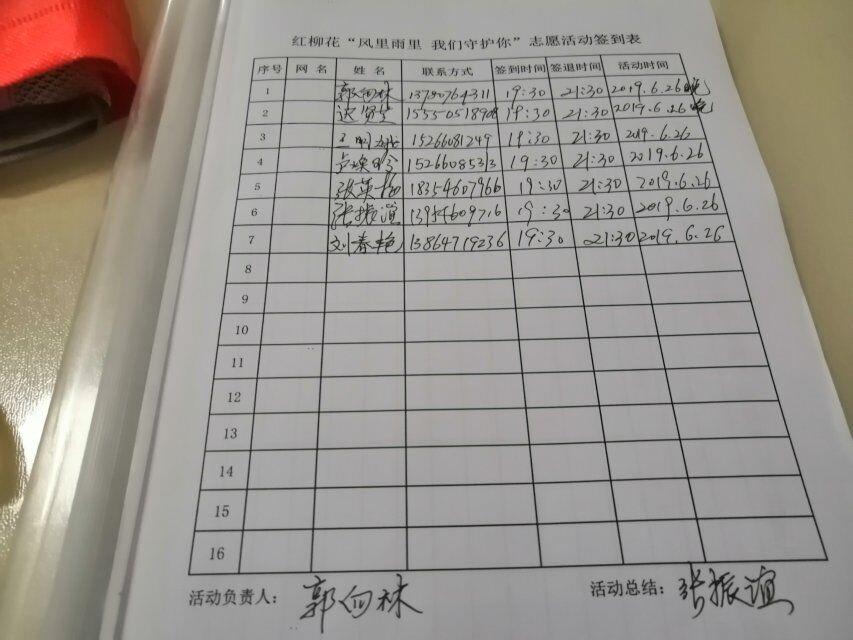 红柳花“风里雨里 我们守护你”志愿活动签到表
序号 网 名 姓 名 联系方式 签到时间 签退时间 活动时间
1 郭向林 13790764311 19:30 21:30 2019.6.26晚
2 15550518908 19:30 21:30 2019.6.26晚
3 15266081249 19:30 21:30 2019.6.26
4 15266085313 19:30 21:30 2019.6.26
5 18354607966 19:30 21:30 2019.6.26
6 张振谊 13954609716 19:30 21:30 2019.6.26
7 刘春艳 13864719236 19:30 21:30 2019.6.26
8
9
10
11
12
13
14
15
16
活动负责人： 郭向林 活动总结： 张振谊